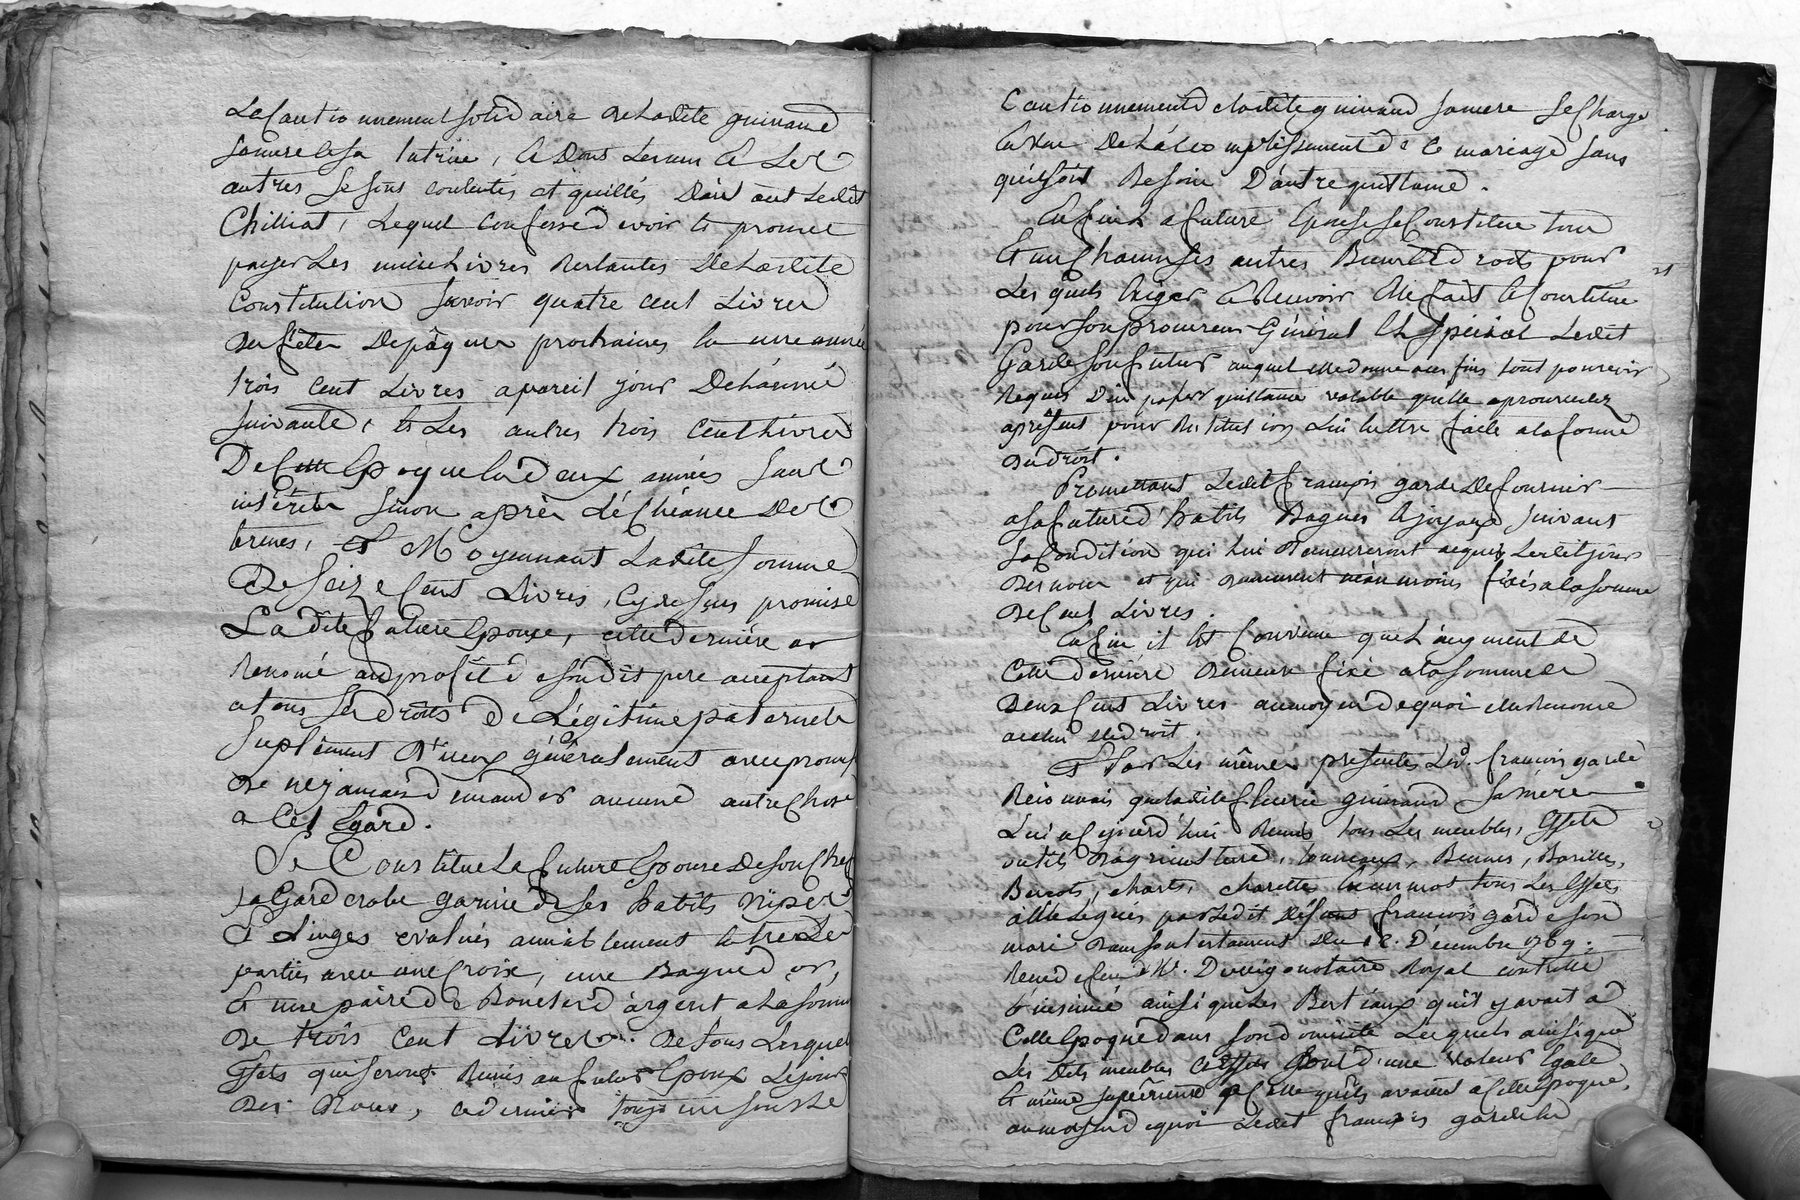 Le Cautionnement solidaire de ladite guinand
sa mere & sa tutrice, & Dont Les uns & Les
autres se sont contentés et quittés Disant Ledit
Chilliat, Lequel Confesse devoir & promet
payer Les onze Livres Restantes De Ladite
Constitution savoir quatre cent Livres
aux fêtes De pâques prochaines la une année
trois cent Livres a pareil jour De L'année
suivante, & Les autres trois Cent Livres
De Cette Epoque En deux années sans
intérêts sinon après L'échéance Des
termes, Et Moyennant Ladite somme
De seize Cent Livres, Cy dessus promise
La dite future Epouse, cette derniere a
Renoncé au profit de son dit pere acceptant
a tous ses droits De Légitime paternelle
suplément D'iceux généralement avec promesse
De ne jamais demander aucune autre Chose
a Cet Egard.
Se Constitue La future Epouse De son Chef
sa Garderobe garnie de ses habits Nipes
& Linges evalués amiablement Entre Les
parties avec une Croix, une Bague d'or,
& une paire de Boucles d'argent a La somme
De trois Cent Livres. De tous Lesquels
Effets qui seront Remis au futur Epoux Le jour
Des Noces, ce dernier toujours sous Le
Cautionnement de ladite guinand sa mere se Charge
En vue De L'accomplissement de Ce mariage sans
qu'il soit Besoin D'autre quittance.
Enfin La future Epouse se Constitue tous
& un Chacun ses autres Biens & Droits pour
Lesquels Exiger & Recevoir Elle fait & Constitue
pour son procureur Général & Spécial Ledit
Garde son futur auquel elle donne aux fins tout pouvoir
Requis D'en passer quittance valable qu'elle aprouve dez
apresent pour Restitution Lui Estre faite a la forme
du droit.
Promettant Ledit françois garde De fournir
a sa future d'habits Bagues & joyaux suivant
sa Condition qui Lui demeureront acquis Ledit jour
Des noces et qui demeurent néanmoins fixés a la somme
De Cent Livres.
Enfin il Est Convenu que L'augment de
Cette derniere Demeure fixé a la somme de
Deux Cent Livres au moyen de quoi elle Renonce
a celui De droit.
Et Par Les mêmes présentes Led. françois garde
Reconnait que ladite fleurie guinand sa mère
Lui a Cejourd'hui Remis tous Les meubles, Effets
outils D'agriculture, tonneaux, Bennes, Barilles,
Benots, chars, charettes En un mot tous Les Effets
à Elle Légués par Ledit Défunt françois garde son
mari Dans son testament Du 18. Décembre 1789.
Recu de feu Me. notaire Royal controllé
& insinué ainsi que Les Bestiaux qu'il y avait a
Cette Epoque dans son domicile Lesquels ainsi que
Les Dits meubles & Effets sont d'une valeur Egale
& même superieure a Celle qu'ils avaient a Cette Epoque,
au moyen de quoi Ledit françois garde En